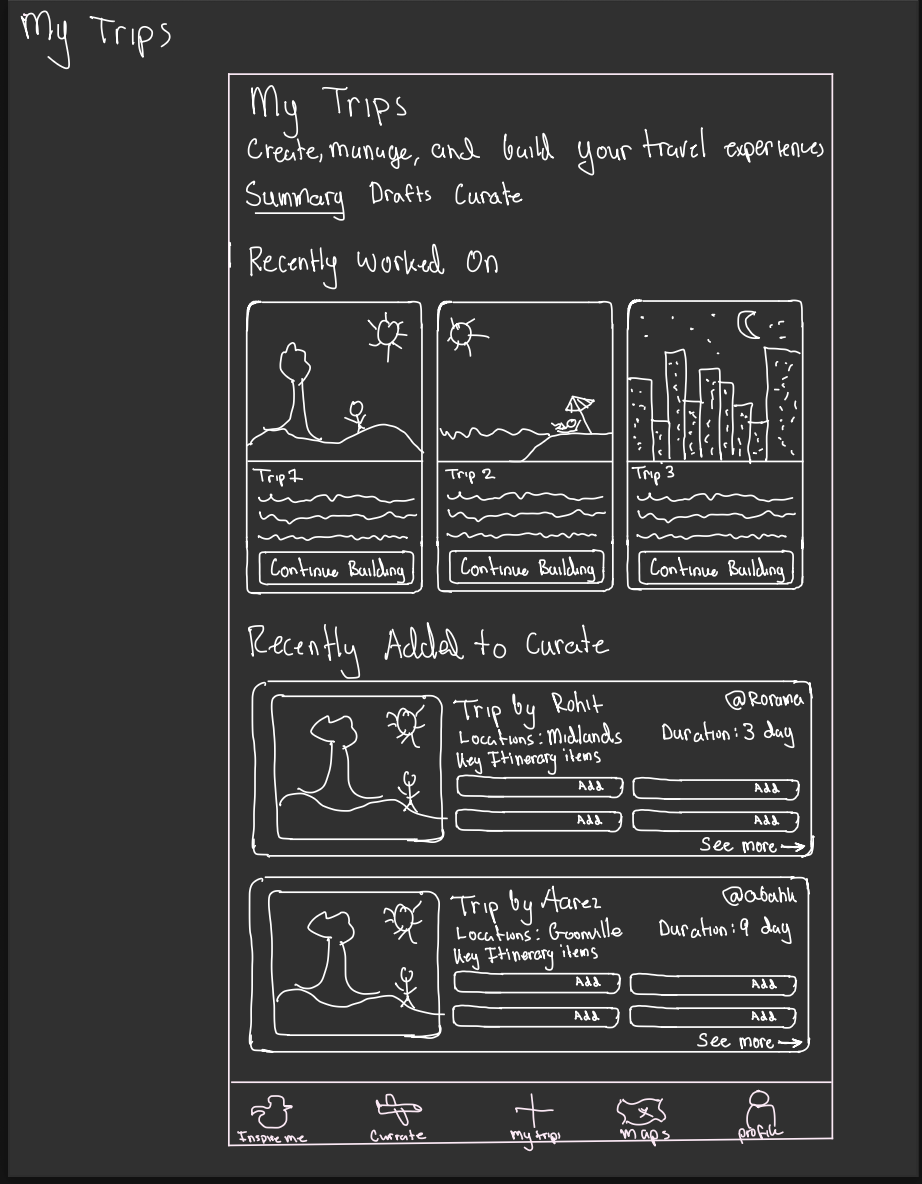 My Trips
My Trips
Create, manage, and build your travel experiences
Summary Drafts Curate
Recently Worked On
Trip 1
Trip 2
Trip 3
Continue Building
Continue Building
Continue Building
Recently Added to Curate
Trip by Rohit @Rorama
Locations: Midlands Duration: 3 day
Key Itinerary items
Add Add
Add Add
See more →
Trip by Aarez
Locations: Goonville Duration: 9 day
Key Itinerary items
Add Add
Add Add
See more →
Inspire me Currate My trips maps profile